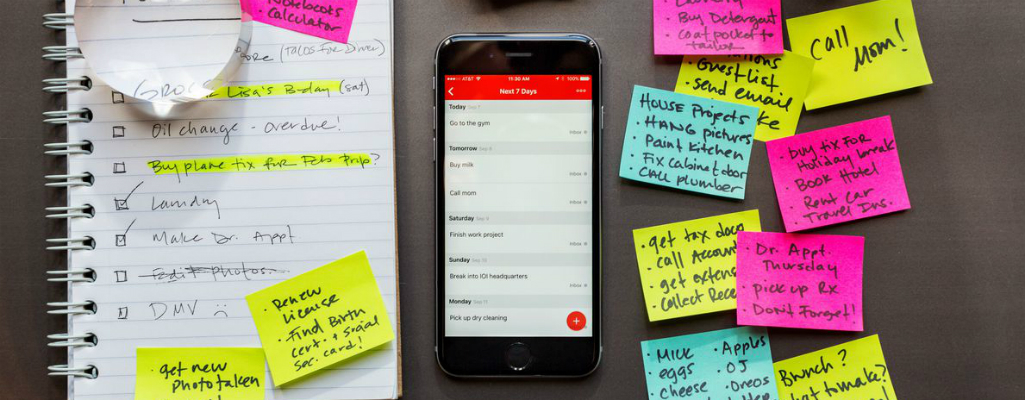 Notebooks
• Calculator
(Tacos for Dinner)
Lisa's B-day (sat)
Oil change - overdue!
Buy plane tix for Feb trip?
Laundry
Make Dr. Appt
Edit photos.
DMV ☹
• Renew
License
• Find Birth
cert. + social
Soc. card!
• get new
Photo taken
AT&T
11:30 AM
100%
Next 7 Days
Today
Go to the gym
Inbox
Tomorrow
Buy milk
Inbox
Call mom
Inbox
Saturday
Finish work project
Inbox
Sunday
Break into IOI headquarters
Inbox
Monday
Pick up dry cleaning
• Buy Detergent
• Coat pocket to
tailor
Guest List
• send email
Call
Mom!
House Projects
• HANG pictures
• Paint Kitchen
• Fix cabinet door
• CALL plumber
• Buy tix FOR
Holiday break
• Book Hotel
• Rent Car
• Travel Ins.
• get tax docs
• call Account
• get extens
• Collect Rece
• Dr. Appt.
Thursday
• pick up Rx
• Don't Forget!
• Milk
eggs
cheese
• Apples
• OJ
• Oreos
Brunch?
to make?